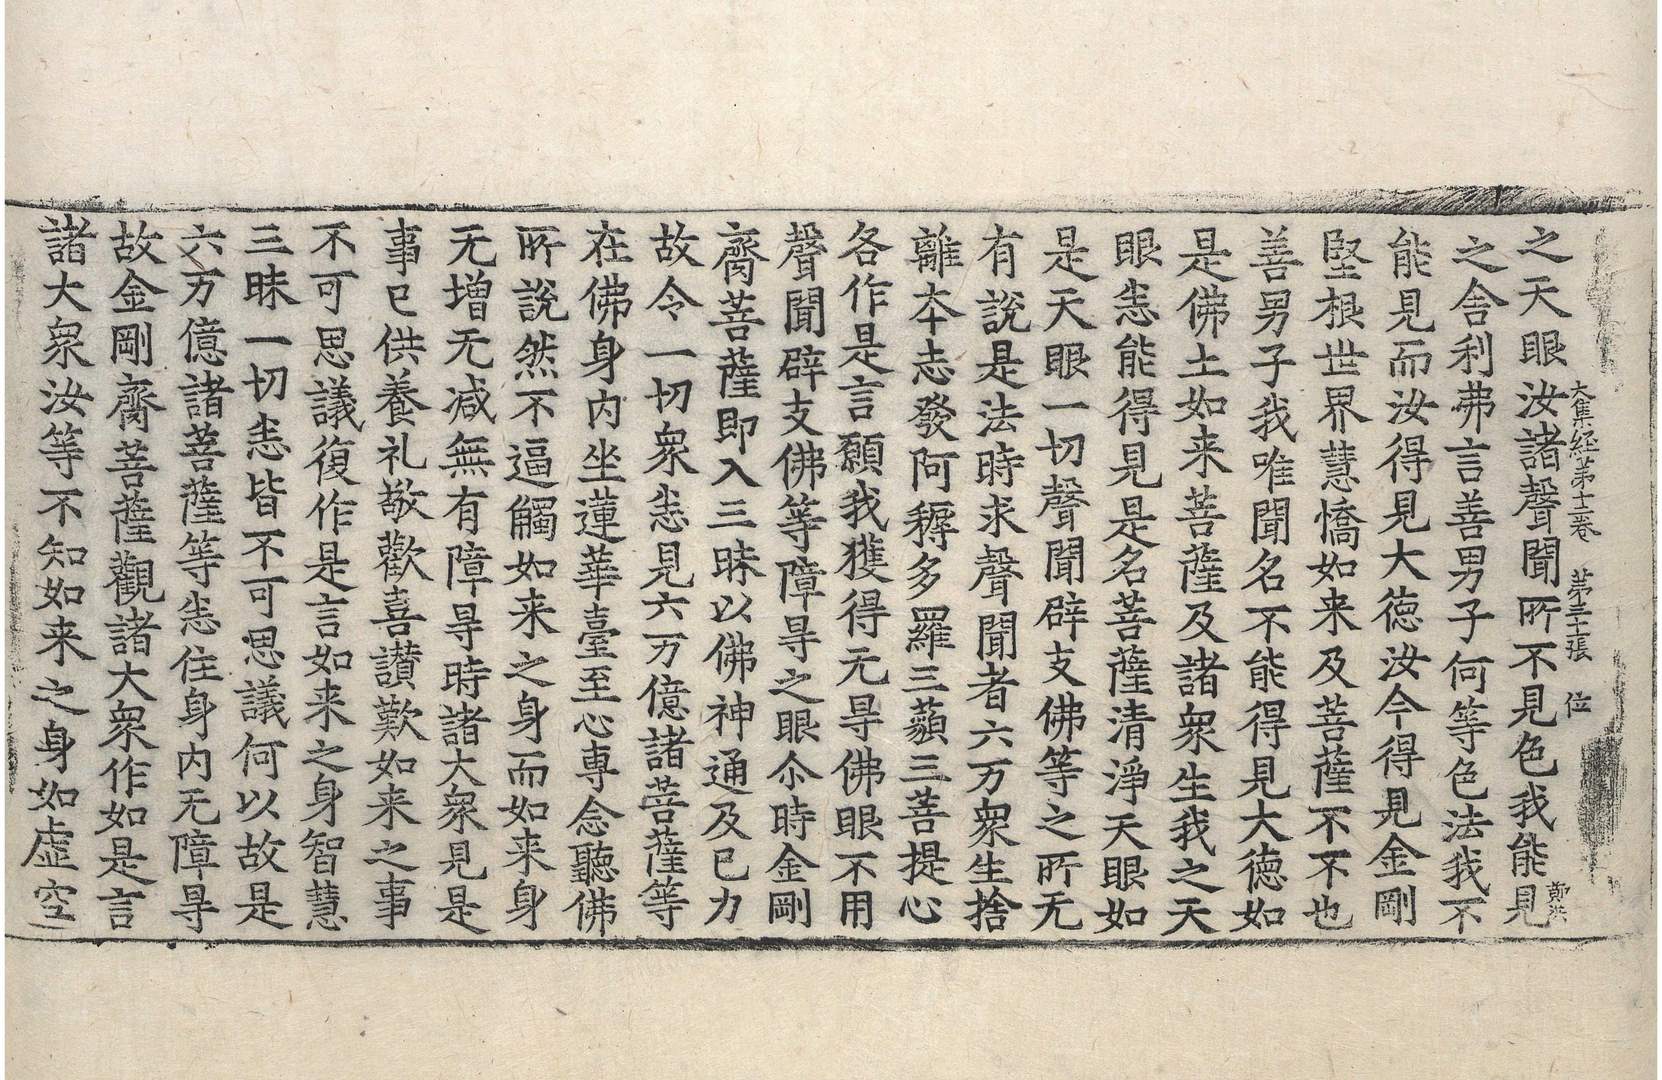 大集経第十二卷　第三十張　位
之天眼汝諸聲聞所不見色我能見
鄭洪
之舍利弗言善男子何等色法我不
能見而汝得見大德汝今得見金剛
堅根世界慧憍如来及菩薩不不也
善男子我唯聞名不能得見大德如
是佛土如来菩薩及諸衆生我之天
眼悉能得見是名菩薩清淨天眼如
是天眼一切聲聞辟支佛等之所无
有說是法時求聲聞者六万衆生捨
離本志發阿耨多羅三藐三菩提心
各作是言願我獲得无㝵佛眼不用
聲聞辟支佛等障㝵之眼尒時金剛
齋菩薩即入三昧以佛神通及已力
故令一切衆悉見六万億諸菩薩等
在佛身内坐蓮華臺至心専念聽佛
所說然不逼觸如来之身而如来身
无增无减無有障㝵時諸大衆見是
事已供養礼敬歡喜讃歎如来之事
不可思議復作是言如来之身智慧
三昧一切悉皆不可思議何以故是
六万億諸菩薩等悉住身内无障㝵
故金剛齋菩薩觀諸大衆作如是言
諸大衆汝等不知如来之身如虚空